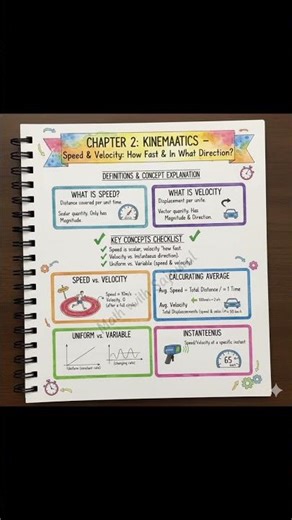 CHAPTER 2: KINEMAATICS –
Speed & Velocity: How Fast & In What Direction?
DEFINITIONS & CONCEPT EXPLANATION
WHAT IS SPEED?
Distance covered per unit time.
Scalar quantity. Only has
Magnitude.
WHAT IS VELOCITY
Displacement per unite.
Vector quantity. Has
Magnitude & Direction.
KEY CONCEPTS CHECKLIST
✓ Speed is scalar, velocity "how fast.
✓ Velocity vs. Instanteous direction).
✓ Uniform vs. Variable (speed & velocity)
SPEED vs. VELOCITY
Speed =
Velocity,
(after a full circle)
CALCURATING AVERAGE
Avg Speed = Total Distance / = 1 Time
Avg. Velocity
Total Displacements (speed & velo
UNIFORM vs. VARIABLE
INSTANTEENUS
Speed/Velocity at a specific instant
65
Math with